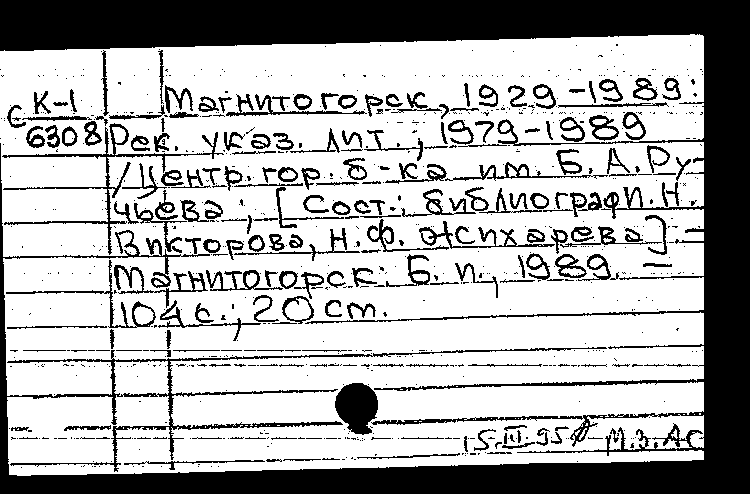 С К-1
6308
Магнитогорск, 1929-1989:
Рек. указ. лит., 1979-1989
/Центр. гор. б-ка им. Б. А. Ру-
чьева; [Сост.: библиограф И. Н.
Викторова, Н. Ф. Эйсихарева]. —
Магнитогорск: Б. и., 1989. —
104 с.; 20 cm.
15.III.95 М.З. АС